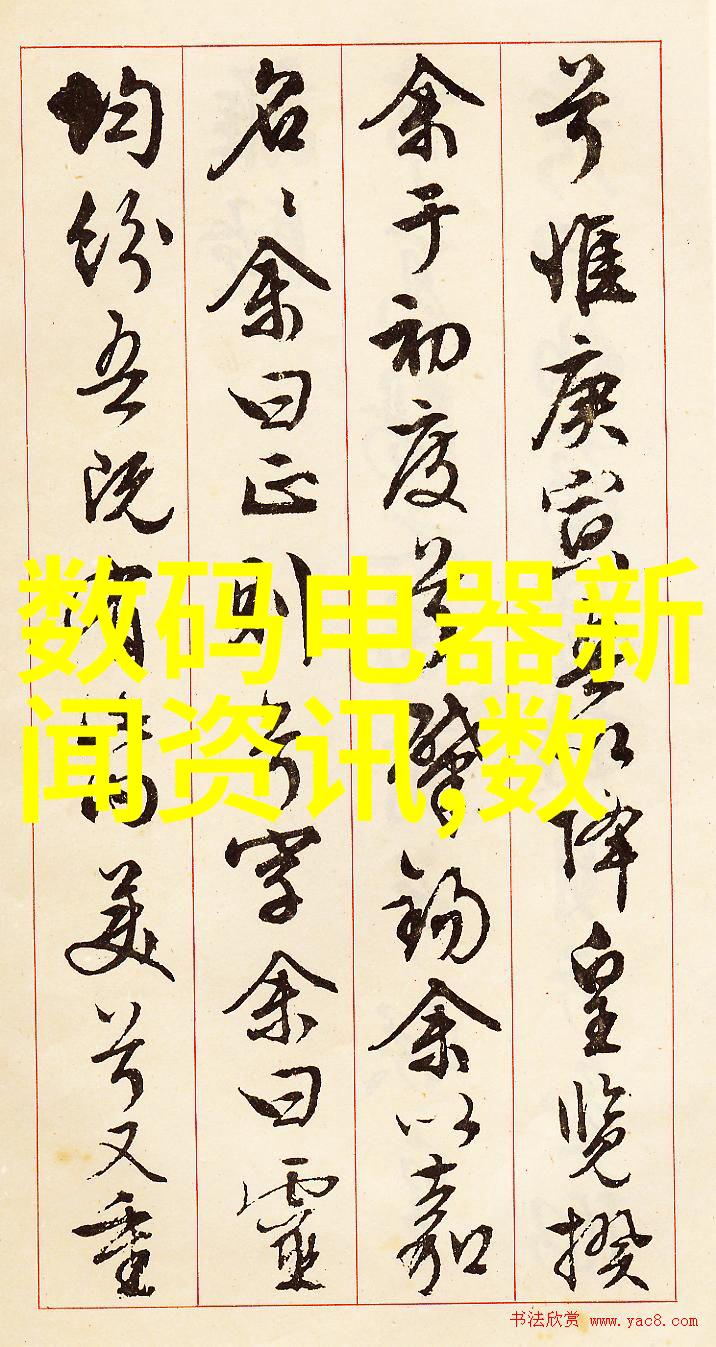 兮惟庚寅吾以降皇覽揆
余于初度兮肇錫余以嘉
名〻余曰正則兮字余曰靈
均紛吾既有此内美兮又重
数码电器新
闻资讯,数
书法欣赏 www.yac8.com